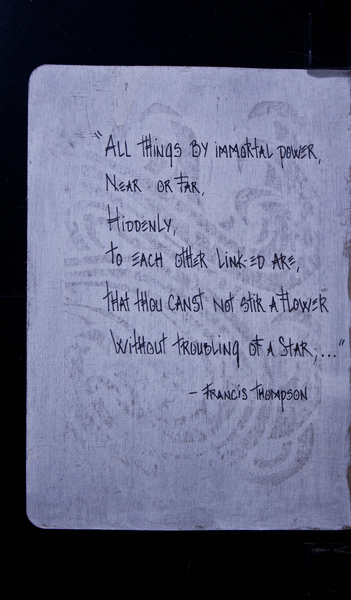 "All things by immortal power,
Near or Far,
Hiddenly,
to each other linked are,
that thou canst not stir a flower
without troubling of a star;..."
- Francis Thompson